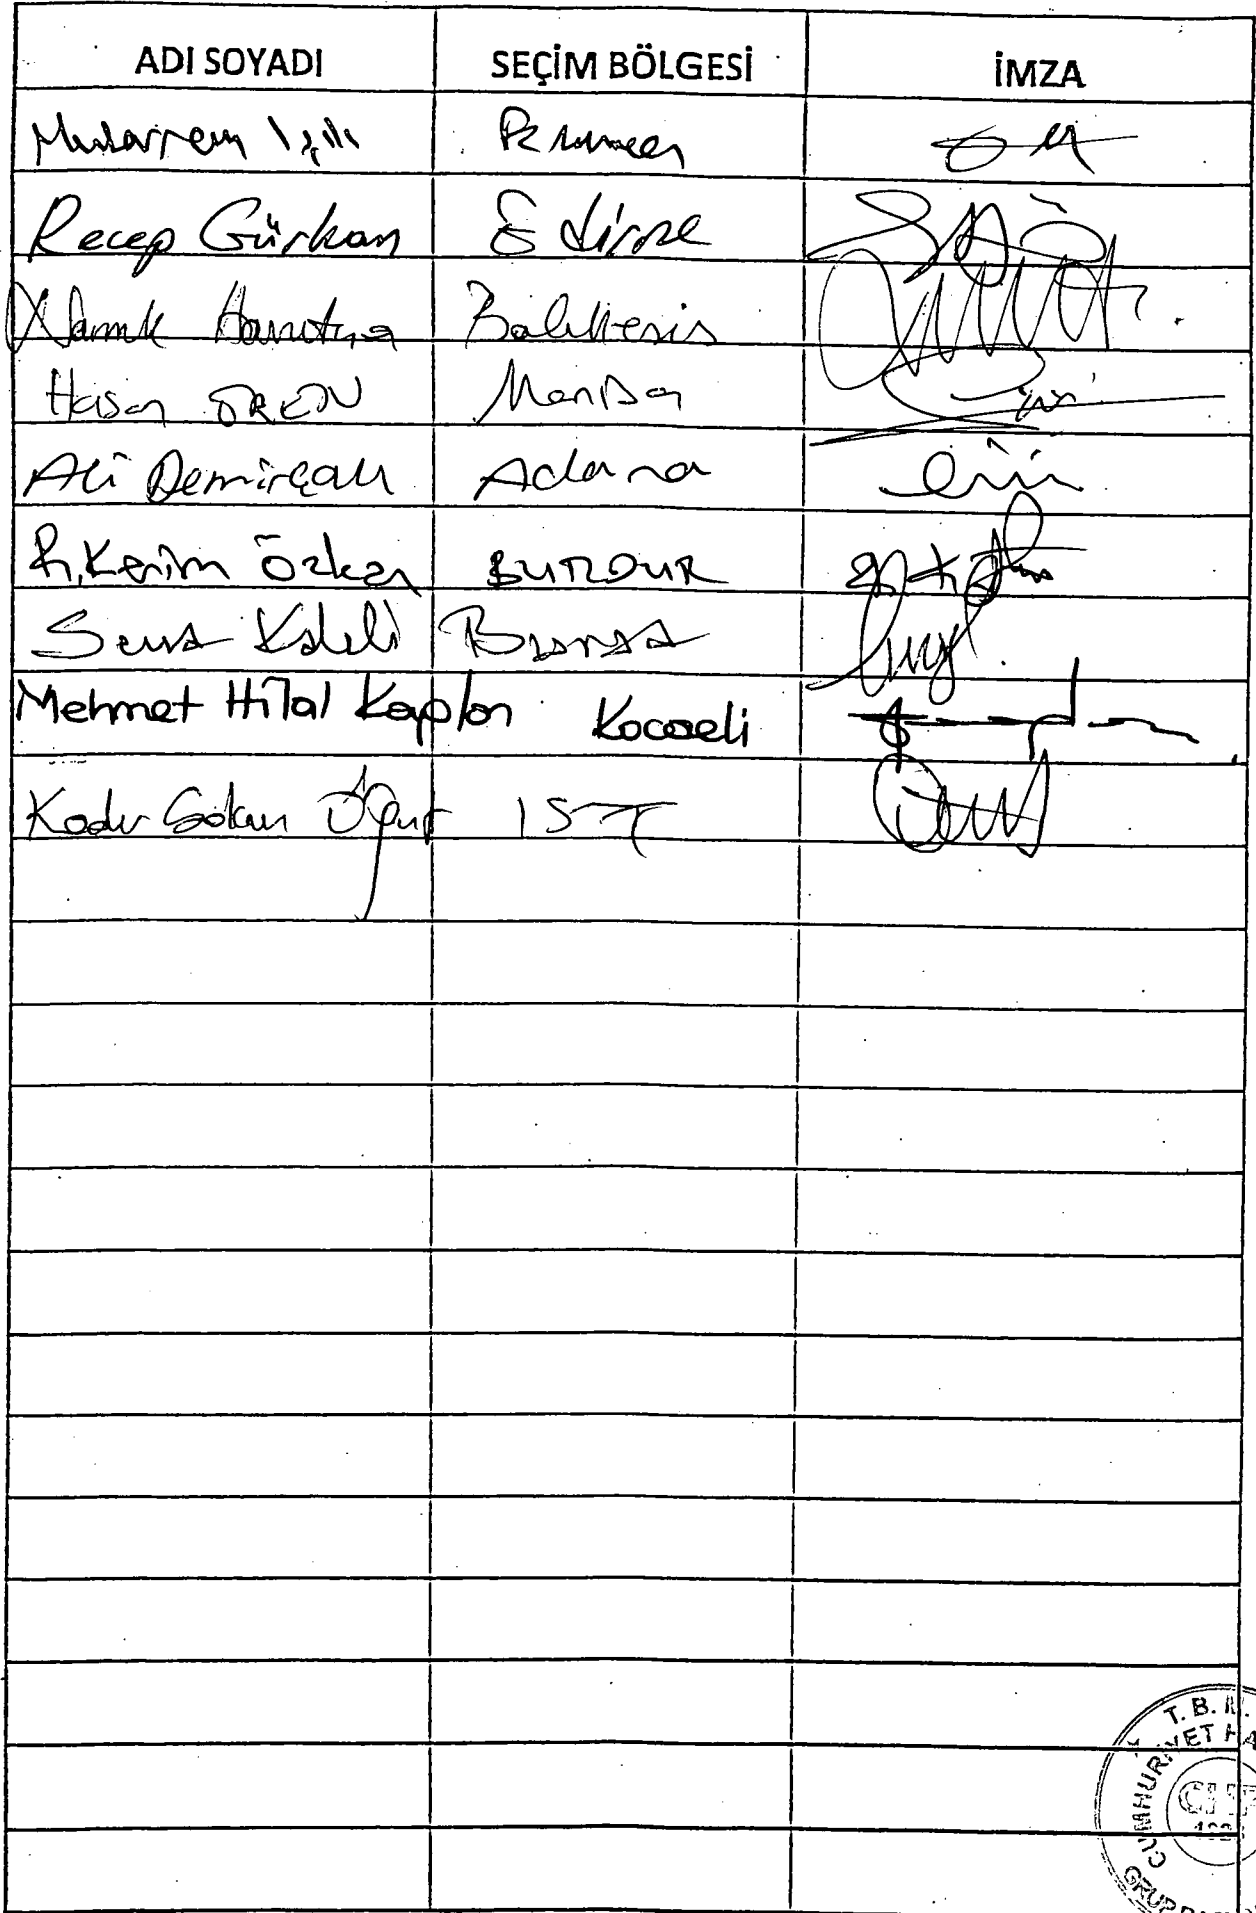 ADI SOYADI SEÇİM BÖLGESİ İMZA
Muharrem Işık
Recep Gürkan Edirne
Namık Havutça Balıkesir
Hasan ÖREN Manisa
Ali Demirçalı Adana
R. Kerim Özkan BURDUR
Sena Kaleli Bursa
Mehmet Hilal Kaplan Kocaeli
Kadir Gökmen Öğüt IST
T. B. M.
CUMHURİYET HA
CHP
GRUP